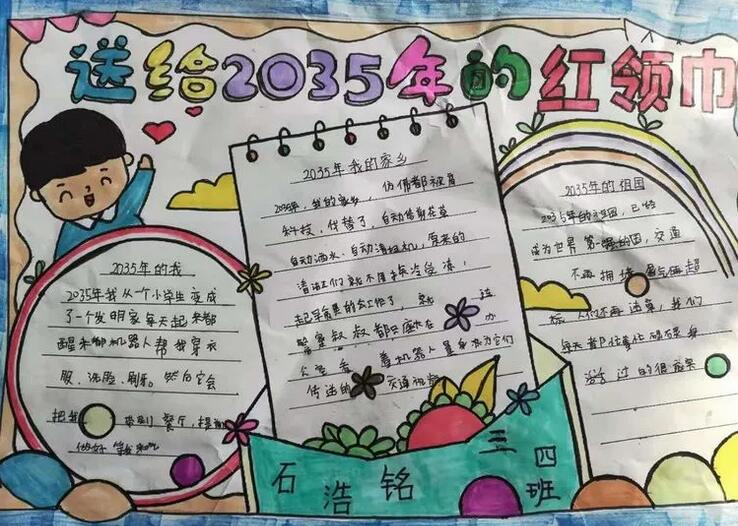 送给2035年的红领巾
2035年的我
2035年我从一个小学生变成
了一个发明家每天起来都
醒来都机器人帮我穿衣
服、洗脸、刷牙。然后它会
把我 来到餐厅,提前
做好等我来吃
2035年我的家乡
2035年,我的家乡,仿佛都被高
科技,代替了,自动修剪花草
自动洒水、自动清扫机,原来的
清洁工们就不用挨冷受冻,
起早贪黑的去工作了,
警察叔叔都只座在 办
公室看 着机器人
传送的 交通视频
2035年的祖国
2035年的祖国,已经
成为世界第一强的国,交通
不再拥堵 尾气俩超
标,人们不再 我们
每天都
活 过的很
石浩铭
三四班